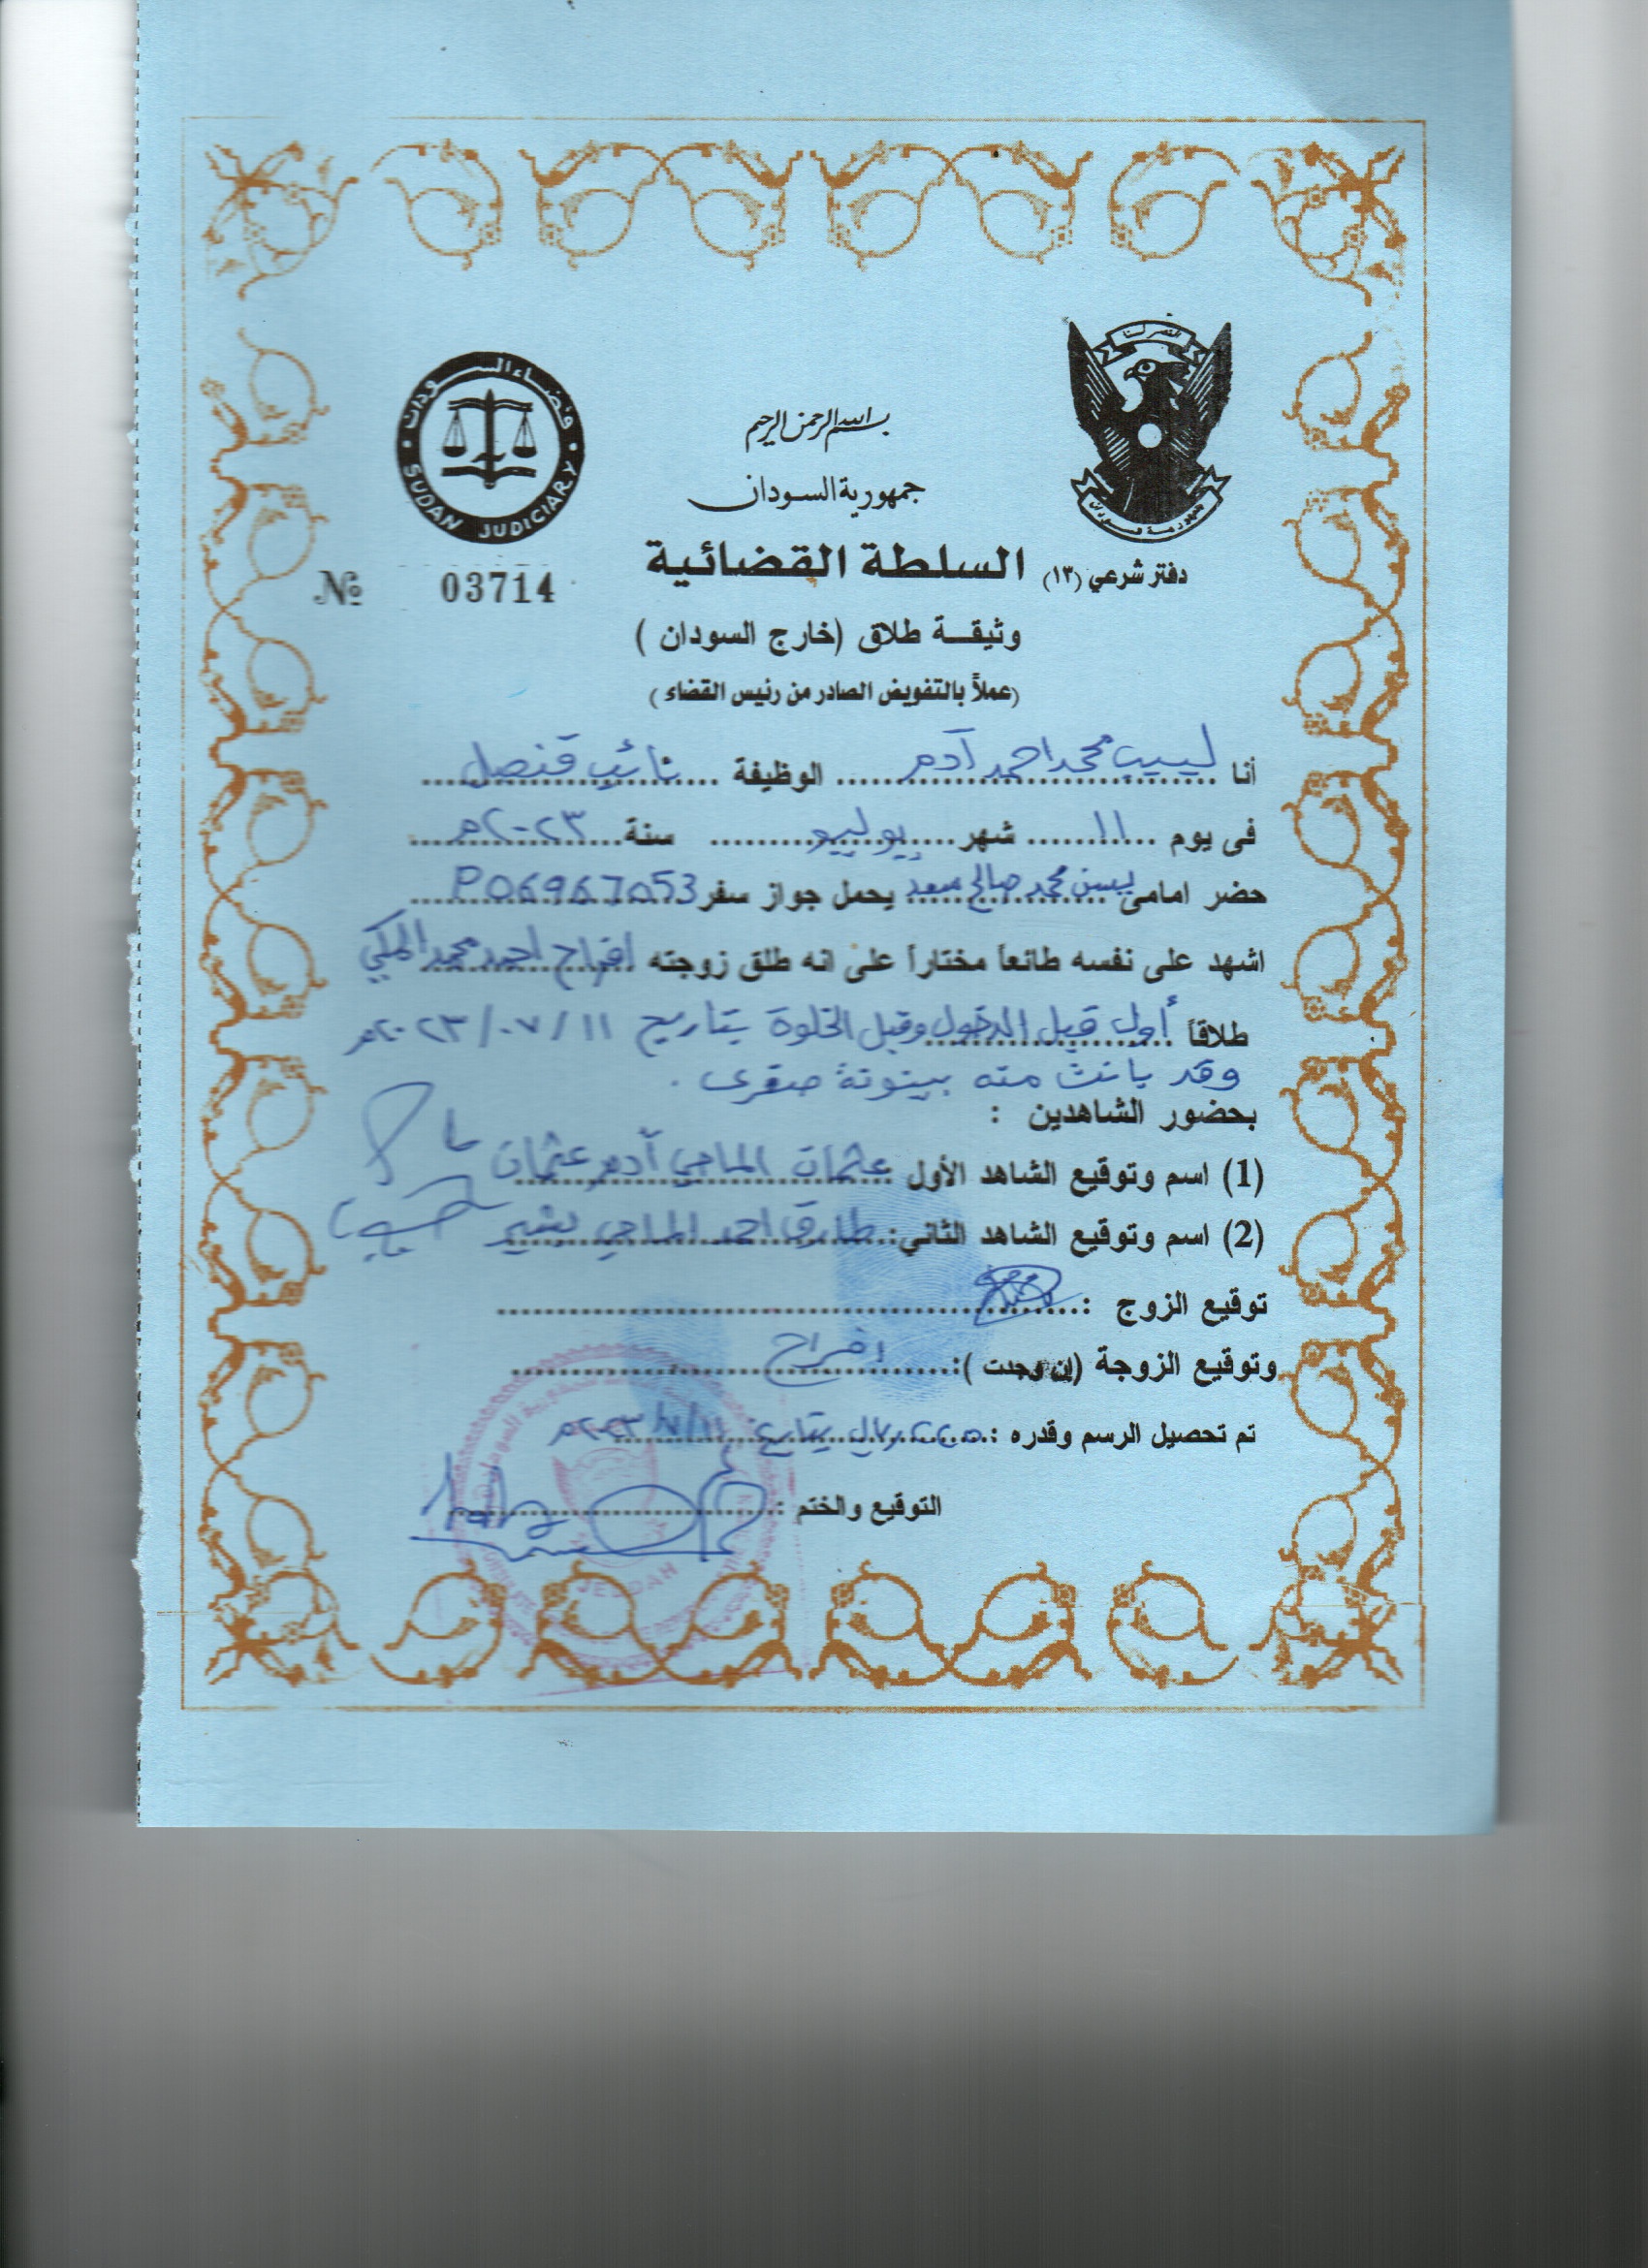 قضاء السودان
SUDAN JUDICIARY
بسم الله الرحمن الرحيم
جمهورية السودان
№ 03714
السلطة القضائية
دفتر شرعي (١٣)
وثيقة طلاق (خارج السودان )
(عملاً بالتفويض الصادر من رئيس القضاء )
أنا لبيب محمد احمد آدم الوظيفة نائب قنصل
فى يوم ١١ شهر يوليو سنة ٢٠٢٣م
حضر امامى يسن محمد صالح سعد يحمل جواز سفر P06967053
اشهد على نفسه طائعاً مختاراً على انه طلق زوجته افراح احمد محمد المكي
طلاقاً أول قبل الدخول وقبل الخلوة بتاريخ ١١/٠٧/٢٠٢٣م
وقد بانت منه بينونة صغرى .
بحضور الشاهدين :
(1) اسم وتوقيع الشاهد الأول عثمان الماحي آدم عثمان
(2) اسم وتوقيع الشاهد الثاني: طارق احمد الماحي بشير
توقيع الزوج :
وتوقيع الزوجة (إن وجدت ): افراح
تم تحصيل الرسم وقدره : ريال بتاريخ ١١/٧/٢٠٢٣م
التوقيع والختم :
JEDDAH